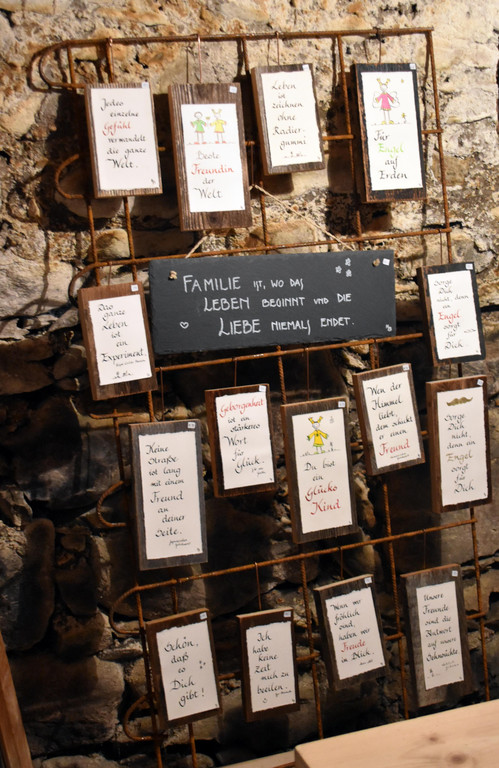 Jedes
einzelne
Gefühl
verwandelt
die ganze
Welt.
Beste
Freundin
der
Welt
Leben
ist
zeichnen
ohne
Radier-
gummi
Für
Engel
auf
Erden
FAMILIE IST, WO DAS
LEBEN BEGINNT UND DIE
LIEBE NIEMALS ENDET.
Das
ganze
Leben
ist
ein
Experiment.
Sorge
Dich
nicht, denn
ein
Engel
sorgt
für
Dich.
Keine
Straße
ist lang
mit einem
Freund
an
deiner
Seite.
Geborgenheit
ist ein
stärkeres
Wort
für
Glück.
Du bist
ein
Glücks
Kind
Wen der
Himmel
liebt,
dem schickt
er einen
Freund
Sorge
Dich
nicht,
denn ein
Engel
sorgt
für
Dich
Schön,
daß
es
Dich
gibt!
Ich
habe
keine
Zeit
mich zu
beeilen.
Wenn wir
fröhlich
sind,
haben wir
Freude
im Blick.
Unsere
Freunde
sind die
Antwort
auf unsere
Sehnsüchte